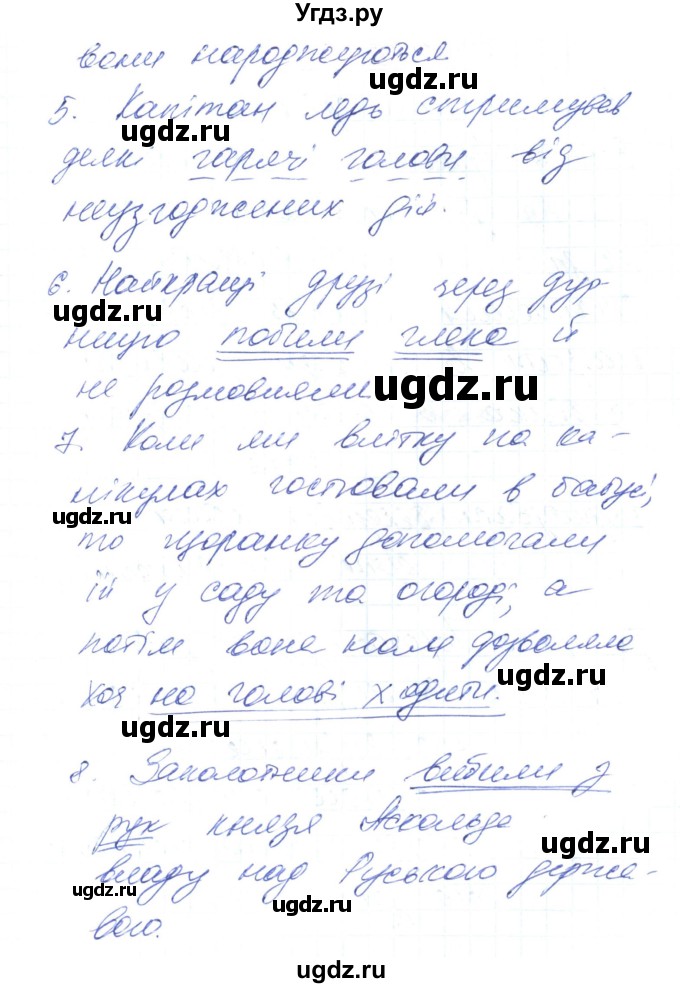 Угдз.ру
вони народжуються
ugdz.ru
5. Капітан ледь стримував
ugdz.ru
деякі гарячі голови від
ugdz.ru
неузгоджених дій.
6. Найкращі друзі через дур-
ugdz.ru
ницю побили глека й
не розмовляли
ugdz.ru
7. Коли ми влітку на ка-
нікулах гостювали в бабусі,
ugdz.ru
то щоранку допомагали
ugdz.ru
їй у саду та огороді, а
потім вона нам дозволяла
хоч на голові ходити.
ugdz.ru
8. Заколотники вибили з
рук князя Аскольда
ugdz.ru
владу над Руською держа-
ugdz.ru
ugdz.ru
вою.
ugdz.ru